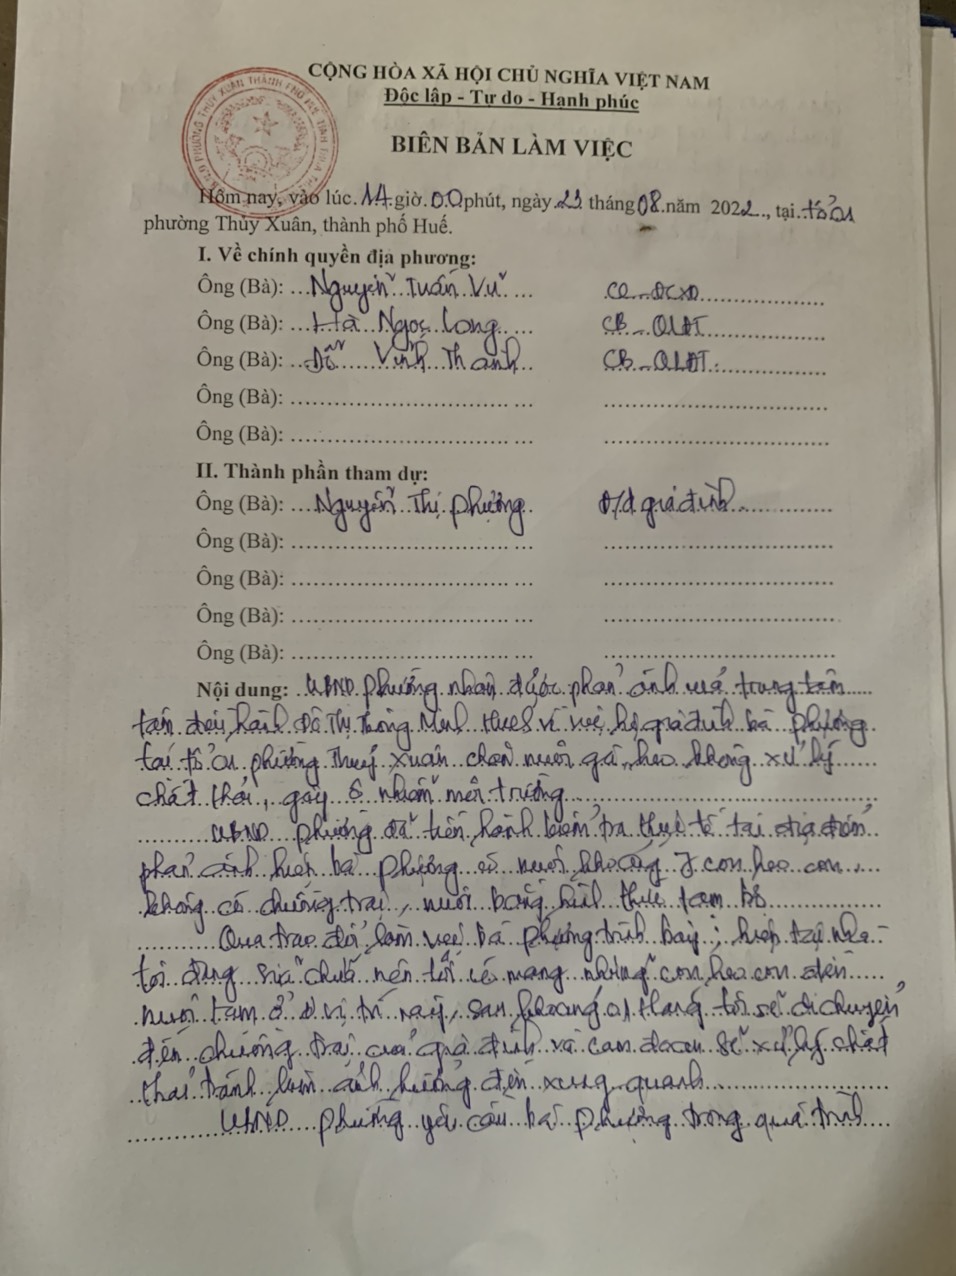 CỘNG HÒA XÃ HỘI CHỦ NGHĨA VIỆT NAM
Độc lập - Tự do - Hạnh phúc
BIÊN BẢN LÀM VIỆC
Hôm nay, vào lúc 14 giờ 00 phút, ngày 23 tháng 08 năm 2022, tại tổ 01
phường Thủy Xuân, thành phố Huế.
I. Về chính quyền địa phương:
Ông (Bà): Nguyễn Tuấn Vũ CC-ĐCXD
Ông (Bà): Hà Ngọc Long CB-QLĐT
Ông (Bà): Đỗ Vinh Thanh CB-QLĐT
Ông (Bà):
Ông (Bà):
II. Thành phần tham dự:
Ông (Bà): Nguyễn Thị Phượng Đ/d gia đình
Ông (Bà):
Ông (Bà):
Ông (Bà):
Ông (Bà):
Nội dung: UBND phường nhận được phản ánh của trung tâm
điều hành Đô Thị Thông Minh Hues về việc hộ gia đình bà Phượng
tại tổ 01 phường Thuỷ Xuân chăn nuôi gà, heo không xử lý
chất thải, gây ô nhiễm môi trường
UBND phường đã tiến hành kiểm tra thực tế tại địa điểm
phản ánh hiện bà Phượng có nuôi khoảng 7 con heo con,
không có chuồng trại, nuôi bằng hình thức tạm bợ
Qua trao đổi, làm việc bà Phượng trình bày: hiện tại nhà
tôi đang sửa chữa nên tôi có mang những con heo con đến
nuôi tạm ở vị trí này, sau khoảng 01 tháng tôi sẽ di chuyển
đến chuồng trại của gia đình và cam đoan sẽ xử lý chất
thải tránh làm ảnh hưởng đến xung quanh
UBND phường yêu cầu bà Phượng trong quá trình